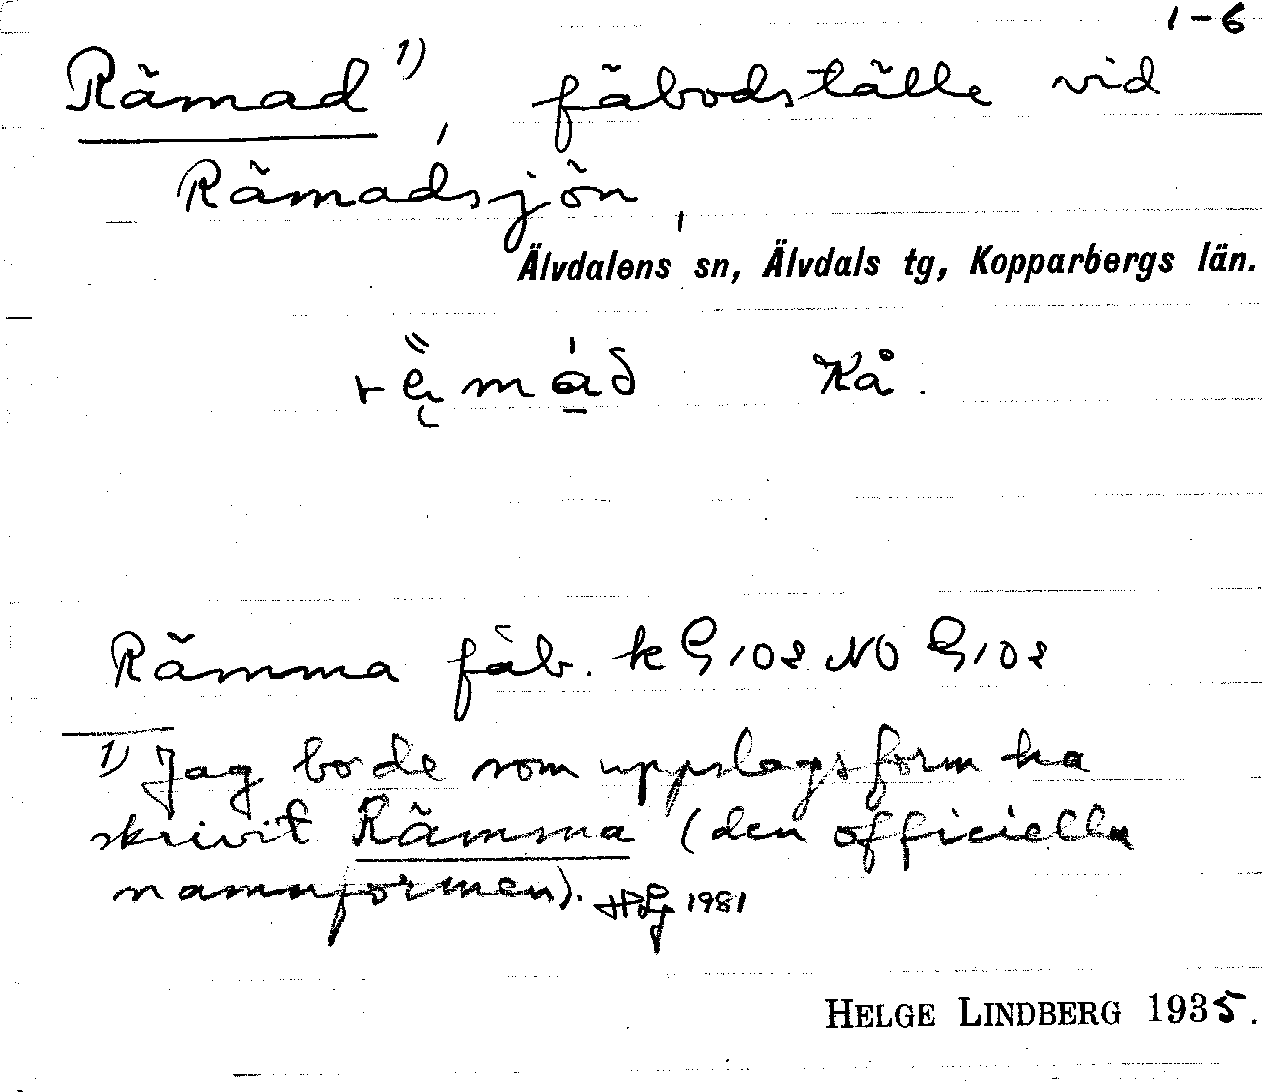 1-6
Rämad 1), fäbodställe vid
Rämadsjön,
Älvdalens sn, Älvdals tg, Kopparbergs län.
Kå.
Rämma fäb. k G 102 NO G 102
1) Jag borde som uppslagsform ha
skrivit Rämma (den officiella
namnformen). HLg 1981
HELGE LINDBERG 1935.